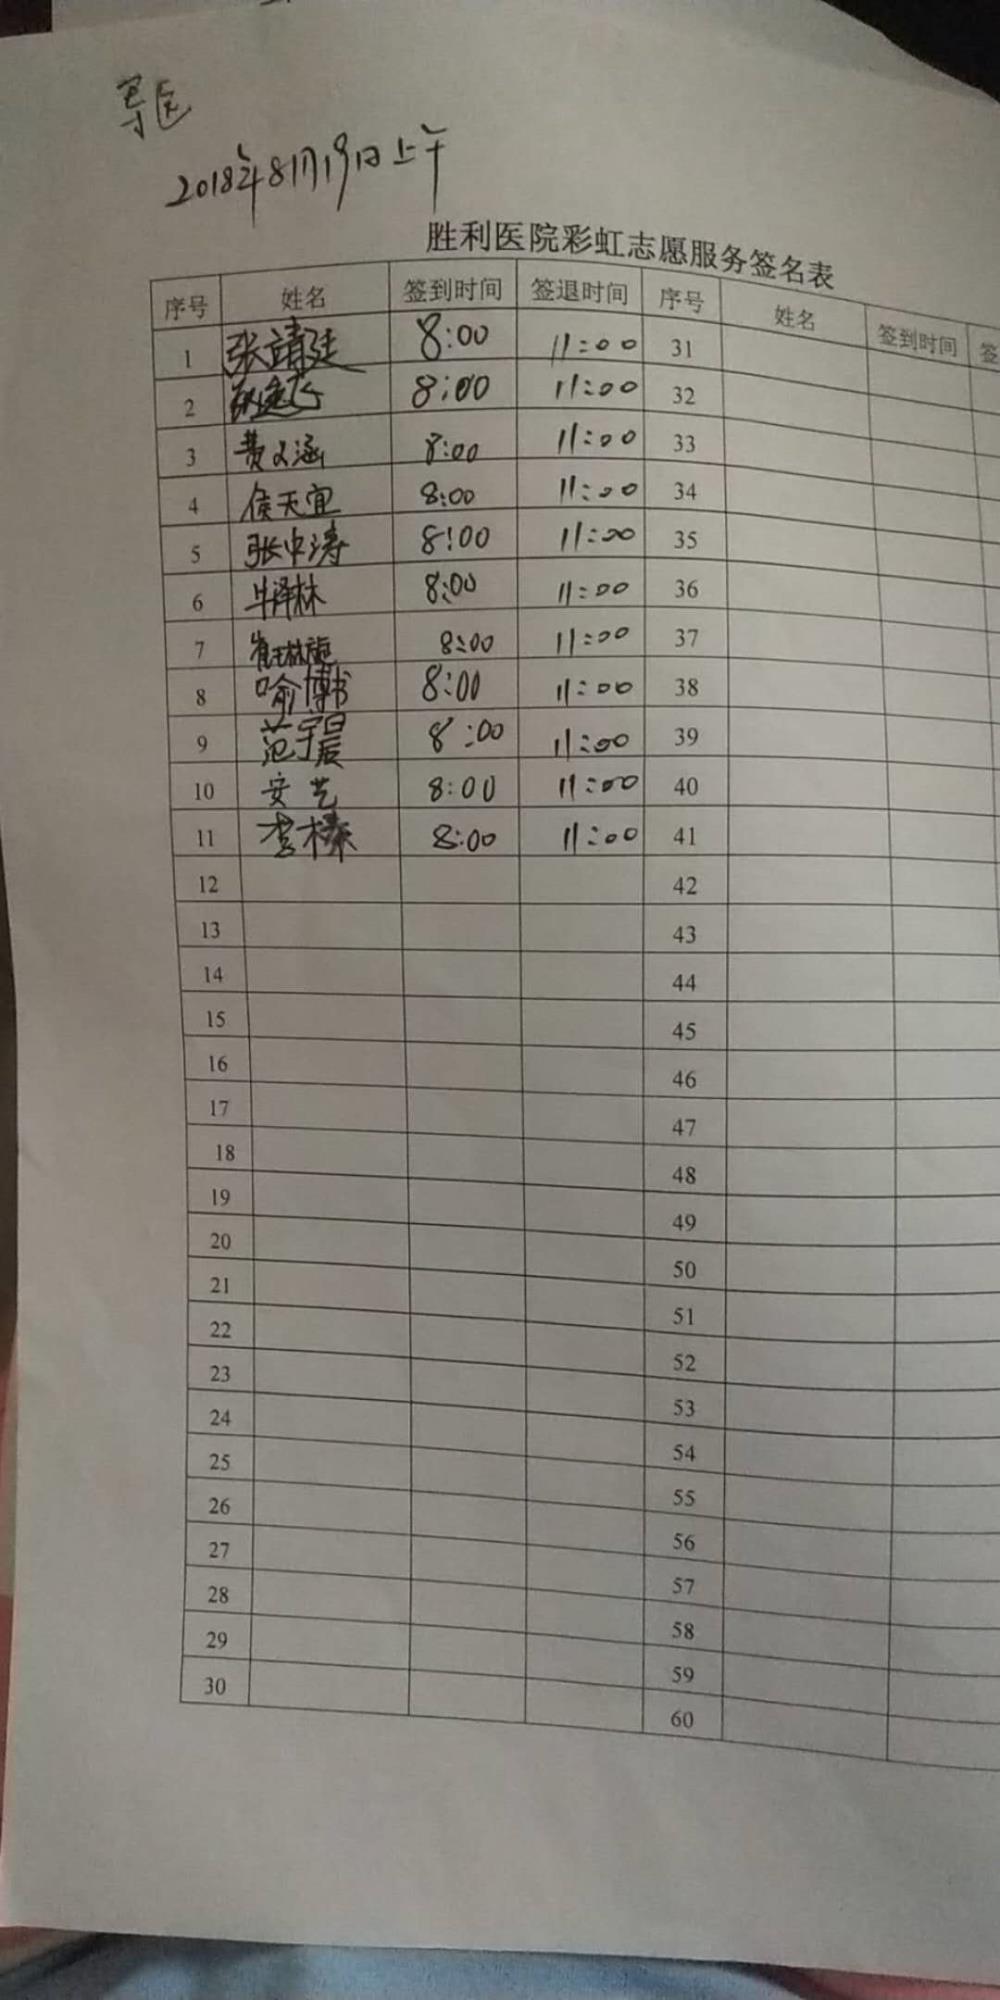 导医
2018年8月19日上午
胜利医院彩虹志愿服务签名表
序号 姓名 签到时间 签退时间 序号 姓名 签到时间 签
1 张靖廷 8:00 11:00 31
2 8:00 11:00 32
3 费义涵 8:00 11:00 33
4 侯天宜 8:00 11:00 34
5 张中涛 8:00 11:00 35
6 牛泽林 8:00 11:00 36
7 8:00 11:00 37
8 喻博书 8:00 11:00 38
9 范宇晨 8:00 11:00 39
10 安艺 8:00 11:00 40
11 李榛 8:00 11:00 41
12 42
13 43
14 44
15 45
16 46
17 47
18 48
19 49
20 50
21 51
22 52
23 53
24 54
25 55
26 56
27 57
28 58
29 59
30 60